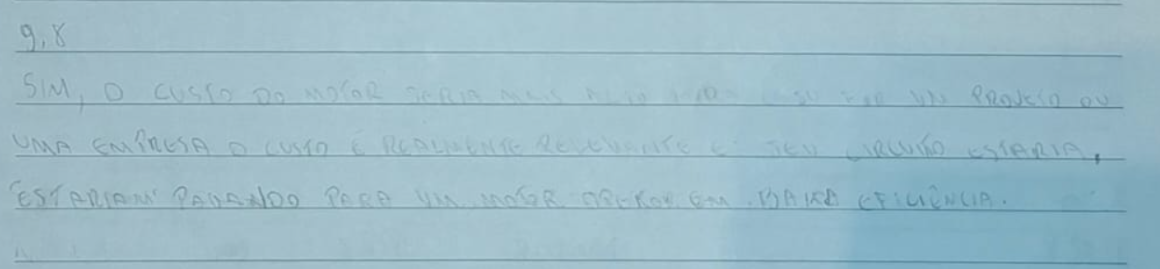 9.8
SIM, O CUSTO DO MOTOR SERIA MAIS ALTO UM PROJETO OU
UMA EMPRESA O CUSTO É REALMENTE RELEVANTE E SEU CIRCUITO ESTARIA,
ESTARIAM PAGANDO PARA UM MOTOR OPERAR EM BAIXA EFICIÊNCIA.